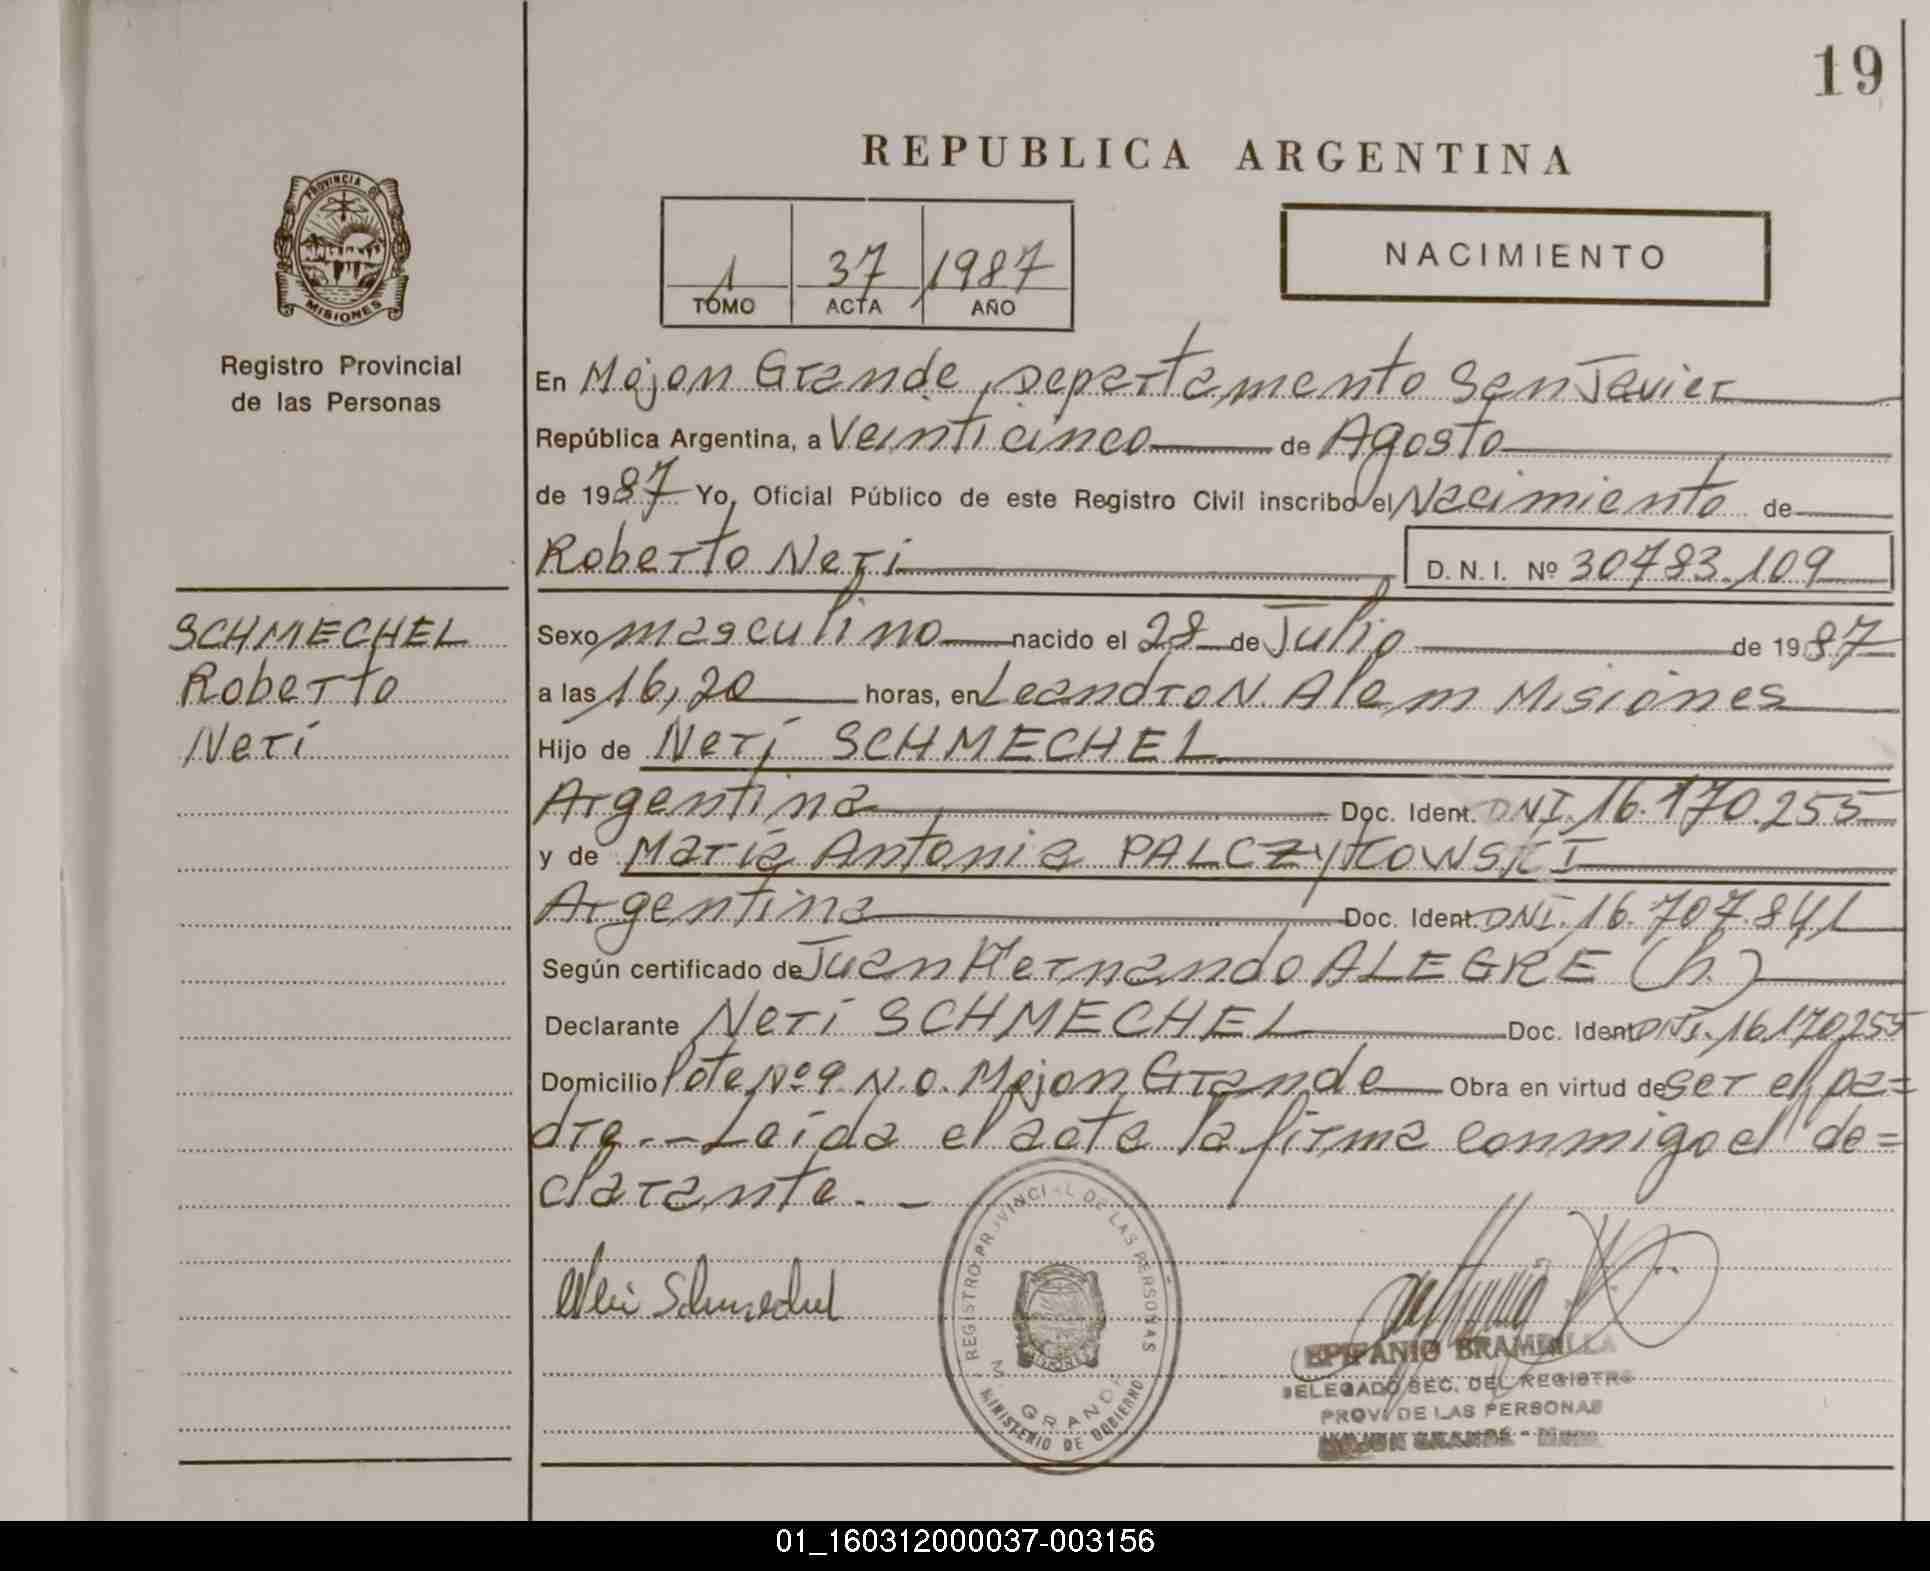 19
REPUBLICA ARGENTINA
PROVINCIA DE
MISIONES
Registro Provincial
de las Personas
1 37 1987
TOMO ACTA AÑO
NACIMIENTO
En Mojon Grande, Departamento San Javier
República Argentina, a Veinticinco de Agosto
de 1987 Yo, Oficial Público de este Registro Civil inscribo el Nacimiento de
Roberto Neri D. N. I. Nº 30783.109
SCHMECHEL
Roberto
Neri
Sexo masculino nacido el 28 de Julio de 1987
a las 16,20 horas, en Leandro N. Alem Misiones
Hijo de Neri SCHMECHEL
Argentina Doc. Ident. DNI. 16.170.255
y de Maria Antonia PALCZYKOWSKI
Argentina Doc. Ident. DNI. 16.707.841
Según certificado de Juan Hernando ALEGRE (h.)
Declarante Neri SCHMECHEL Doc. Ident. DNI. 16.170.255
Domicilio lote nº 9 N.O. Mojon Grande Obra en virtud de ser el pa=
dre.-- Leida el acta la firma conmigo el de=
clarante. -
Neri Schmechel
REGISTRO PROVINCIAL DE LAS PERSONAS
M. GRANDE
MINISTERIO DE GOBIERNO
EPIFANIO BRAMBILLA
DELEGADO SEC. DEL REGISTRO
PROV. DE LAS PERSONAS
MOJON GRANDE - Mnes.
01_160312000037-003156